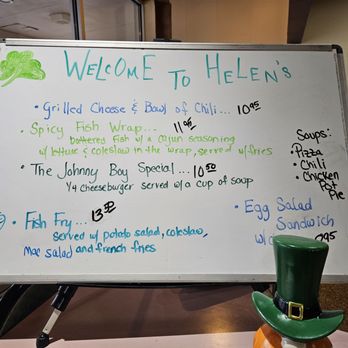 WELCOME TO HELEN'S
• Grilled Cheese & Bowl of Chili... 10.95
• Spicy Fish Wrap... 11.95
battered Fish w/ a cajun seasoning
w/ lettuce & coleslaw in the wrap, served w/ fries
• The Johnny Boy Special... 10.50
1/4 cheeseburger served w/ a cup of soup
• Fish Fry... 13.
served w/ potato salad, coleslaw,
mac salad and french fries
Soups:
• Pizza
• Chili
• Chicken
Pot
Pie
• Egg Salad
Sandwich
w/
95